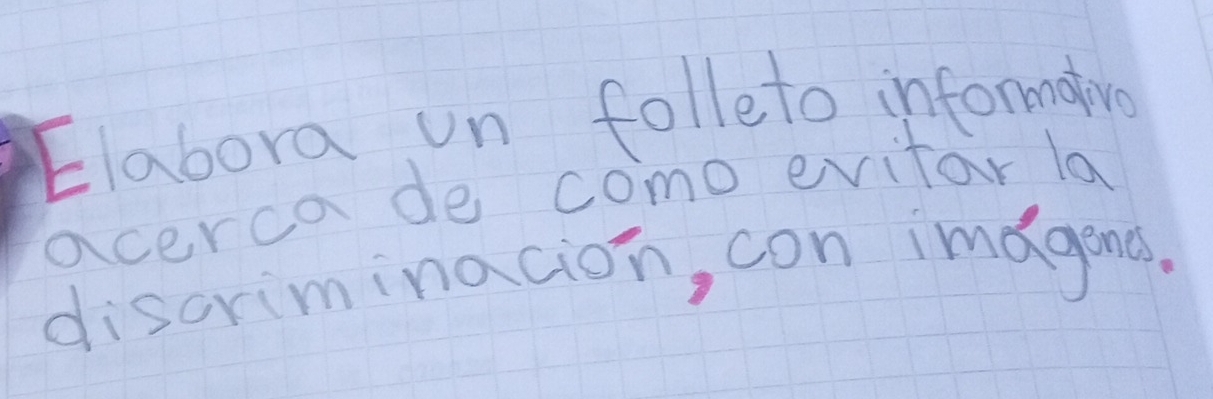 Elabora un folleto informativo
acerca de como evitar la
discriminación, con imágenes.